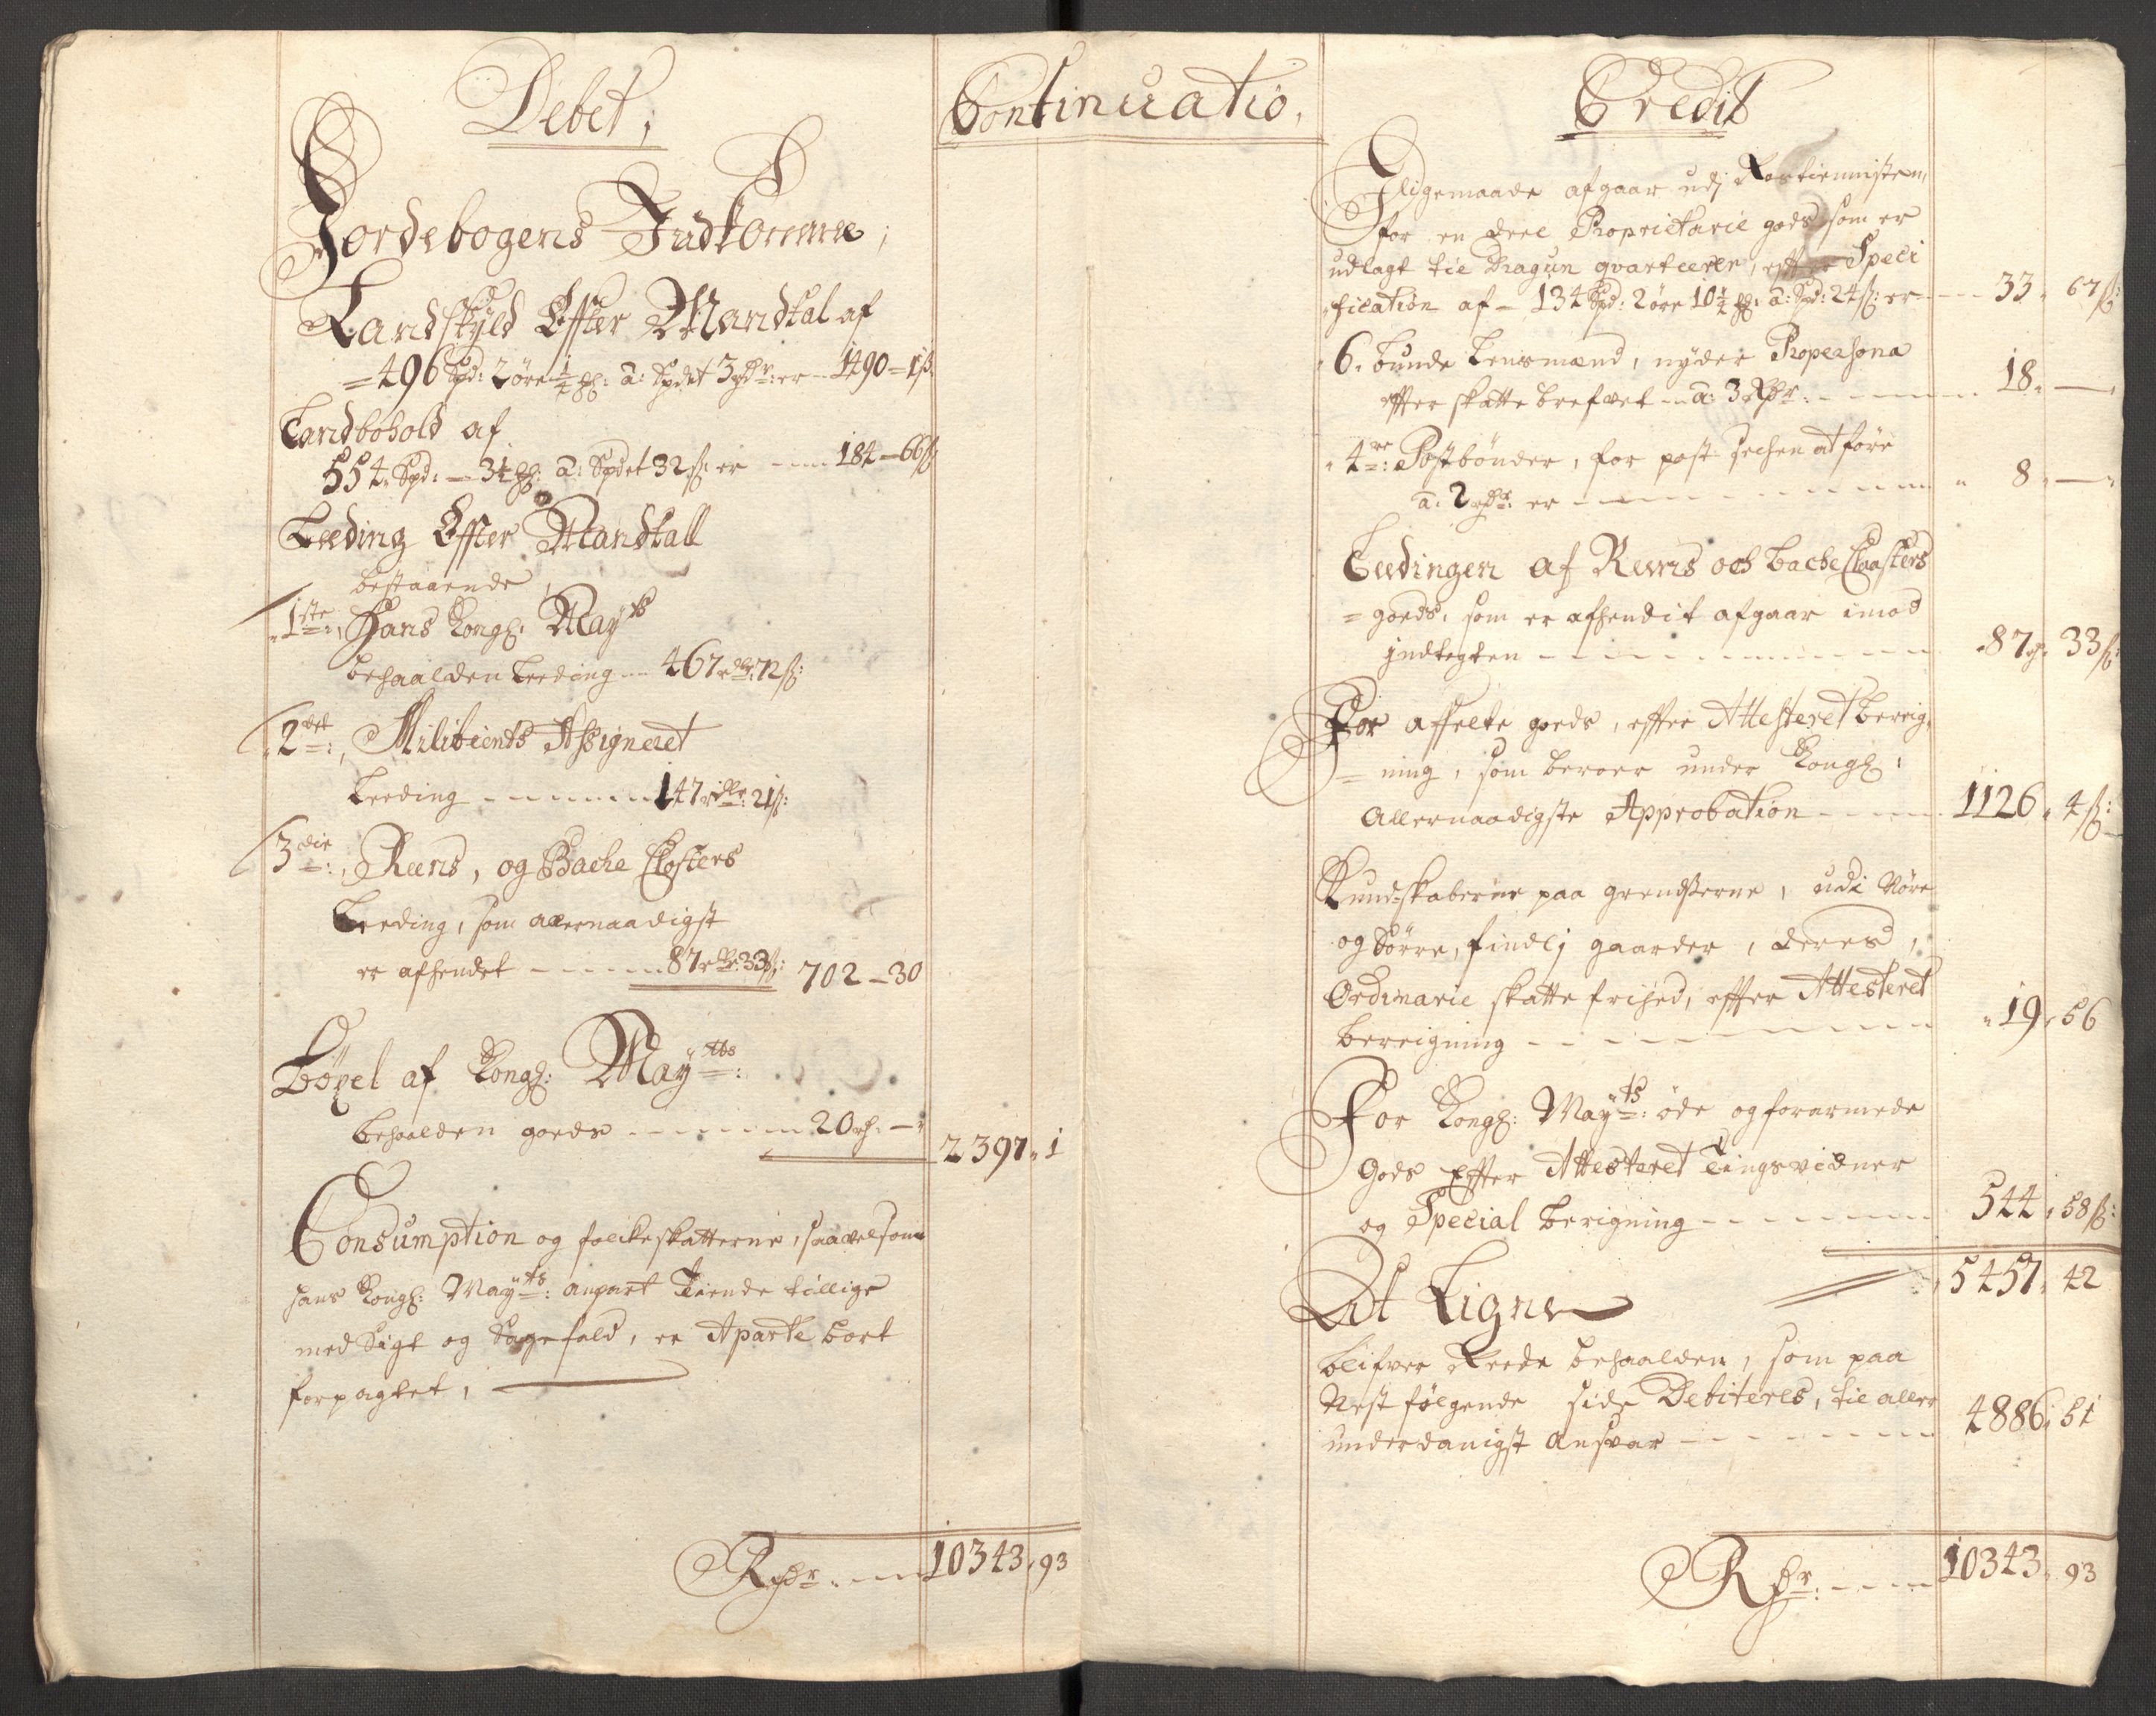 Debet,
Continuatio,
Jordebogens Indkomme,
Landskyld Effter Mandtal af
= 496 Spd: 2 öre 1/4 ℔: a: Spdet 3 rdr: er - 1490 = 1 ß
Landbohold af
554. Spd: - 3 1/2 ℔: a: Spdet 32 ß er - - - 184 - 66 ß
Leeding Effter Mandtall
bestaaende,
1ste: Hans Kongl: Mayts
behaalden Leeding - - 467 rdr 72 ß:
2det:, Militiends Assigneret
Leeding - - - - - - 147 rdlr: 21 ß:
3die:, Reens, og Bache Closters
Leeding, som allernaadigst
er afhendet - - - - - 87 rdr: 33 ß: 702 - 30
Böxel af Kongl: Maytts:
behaalden goeds - - - - - - 20 rd: -
2397 " 1
Consumption og folckeskatterne, saavelsom
hans Kongl: Mayts: anpart Tiende tillige
med Sigt og Sagefald, er Aparte bort
forpagtet,
Rdr: - - - 10343 " 93
Credit
Iligemaade afgaar udj Rostienniste,
for en deel Proprietarie gods som er
udlagt til Dragun qvarteerer, effter Speci
fication af - 134 Spd: 2 öre 10 1/4 ℔: a: Spd: 24 ß: er - - - 33 " 67 ß:
6. bunde Lensmænd, nyder Propersona
effter skatte brefvet - a: 3 Rdr: - - - - - 18 " -
4re: Postbönder, for post at före
a: 2 rdr: er - - - - - - - - - - 8 " -
Leedingen af Reens och Bache Closters
= goeds, som er afhendit afgaar imod
jndtegten - - - - - - - - - 87 rd " 33 ß:
For affelte goeds, effter Attesteret bereig,
= ning, som beroer under Kongl:
Allernaadigste Approbation - - - - 1126 " 4 ß:
Kundskaberne paa grendserne, udi Nöre
og Sörre, findlj gaarder, deres,
Ordinarie skatte frihed, effter Attesteret
bereigning - - - - - - - - - 19 " 56
For Kongl: Mayts: öde og forarmede
Gods Effter Attesteret Tingsvidner
og Special berigning - - - - - - - 544 " 58 ß:
5457 " 42
At Ligne
blifver Reede behaalden, som paa
Nest fölgende side Debiteres, til aller
underdanigst Ansvar - - - - - - - 4886 " 51
Rdr: - - - - 10343 " 93